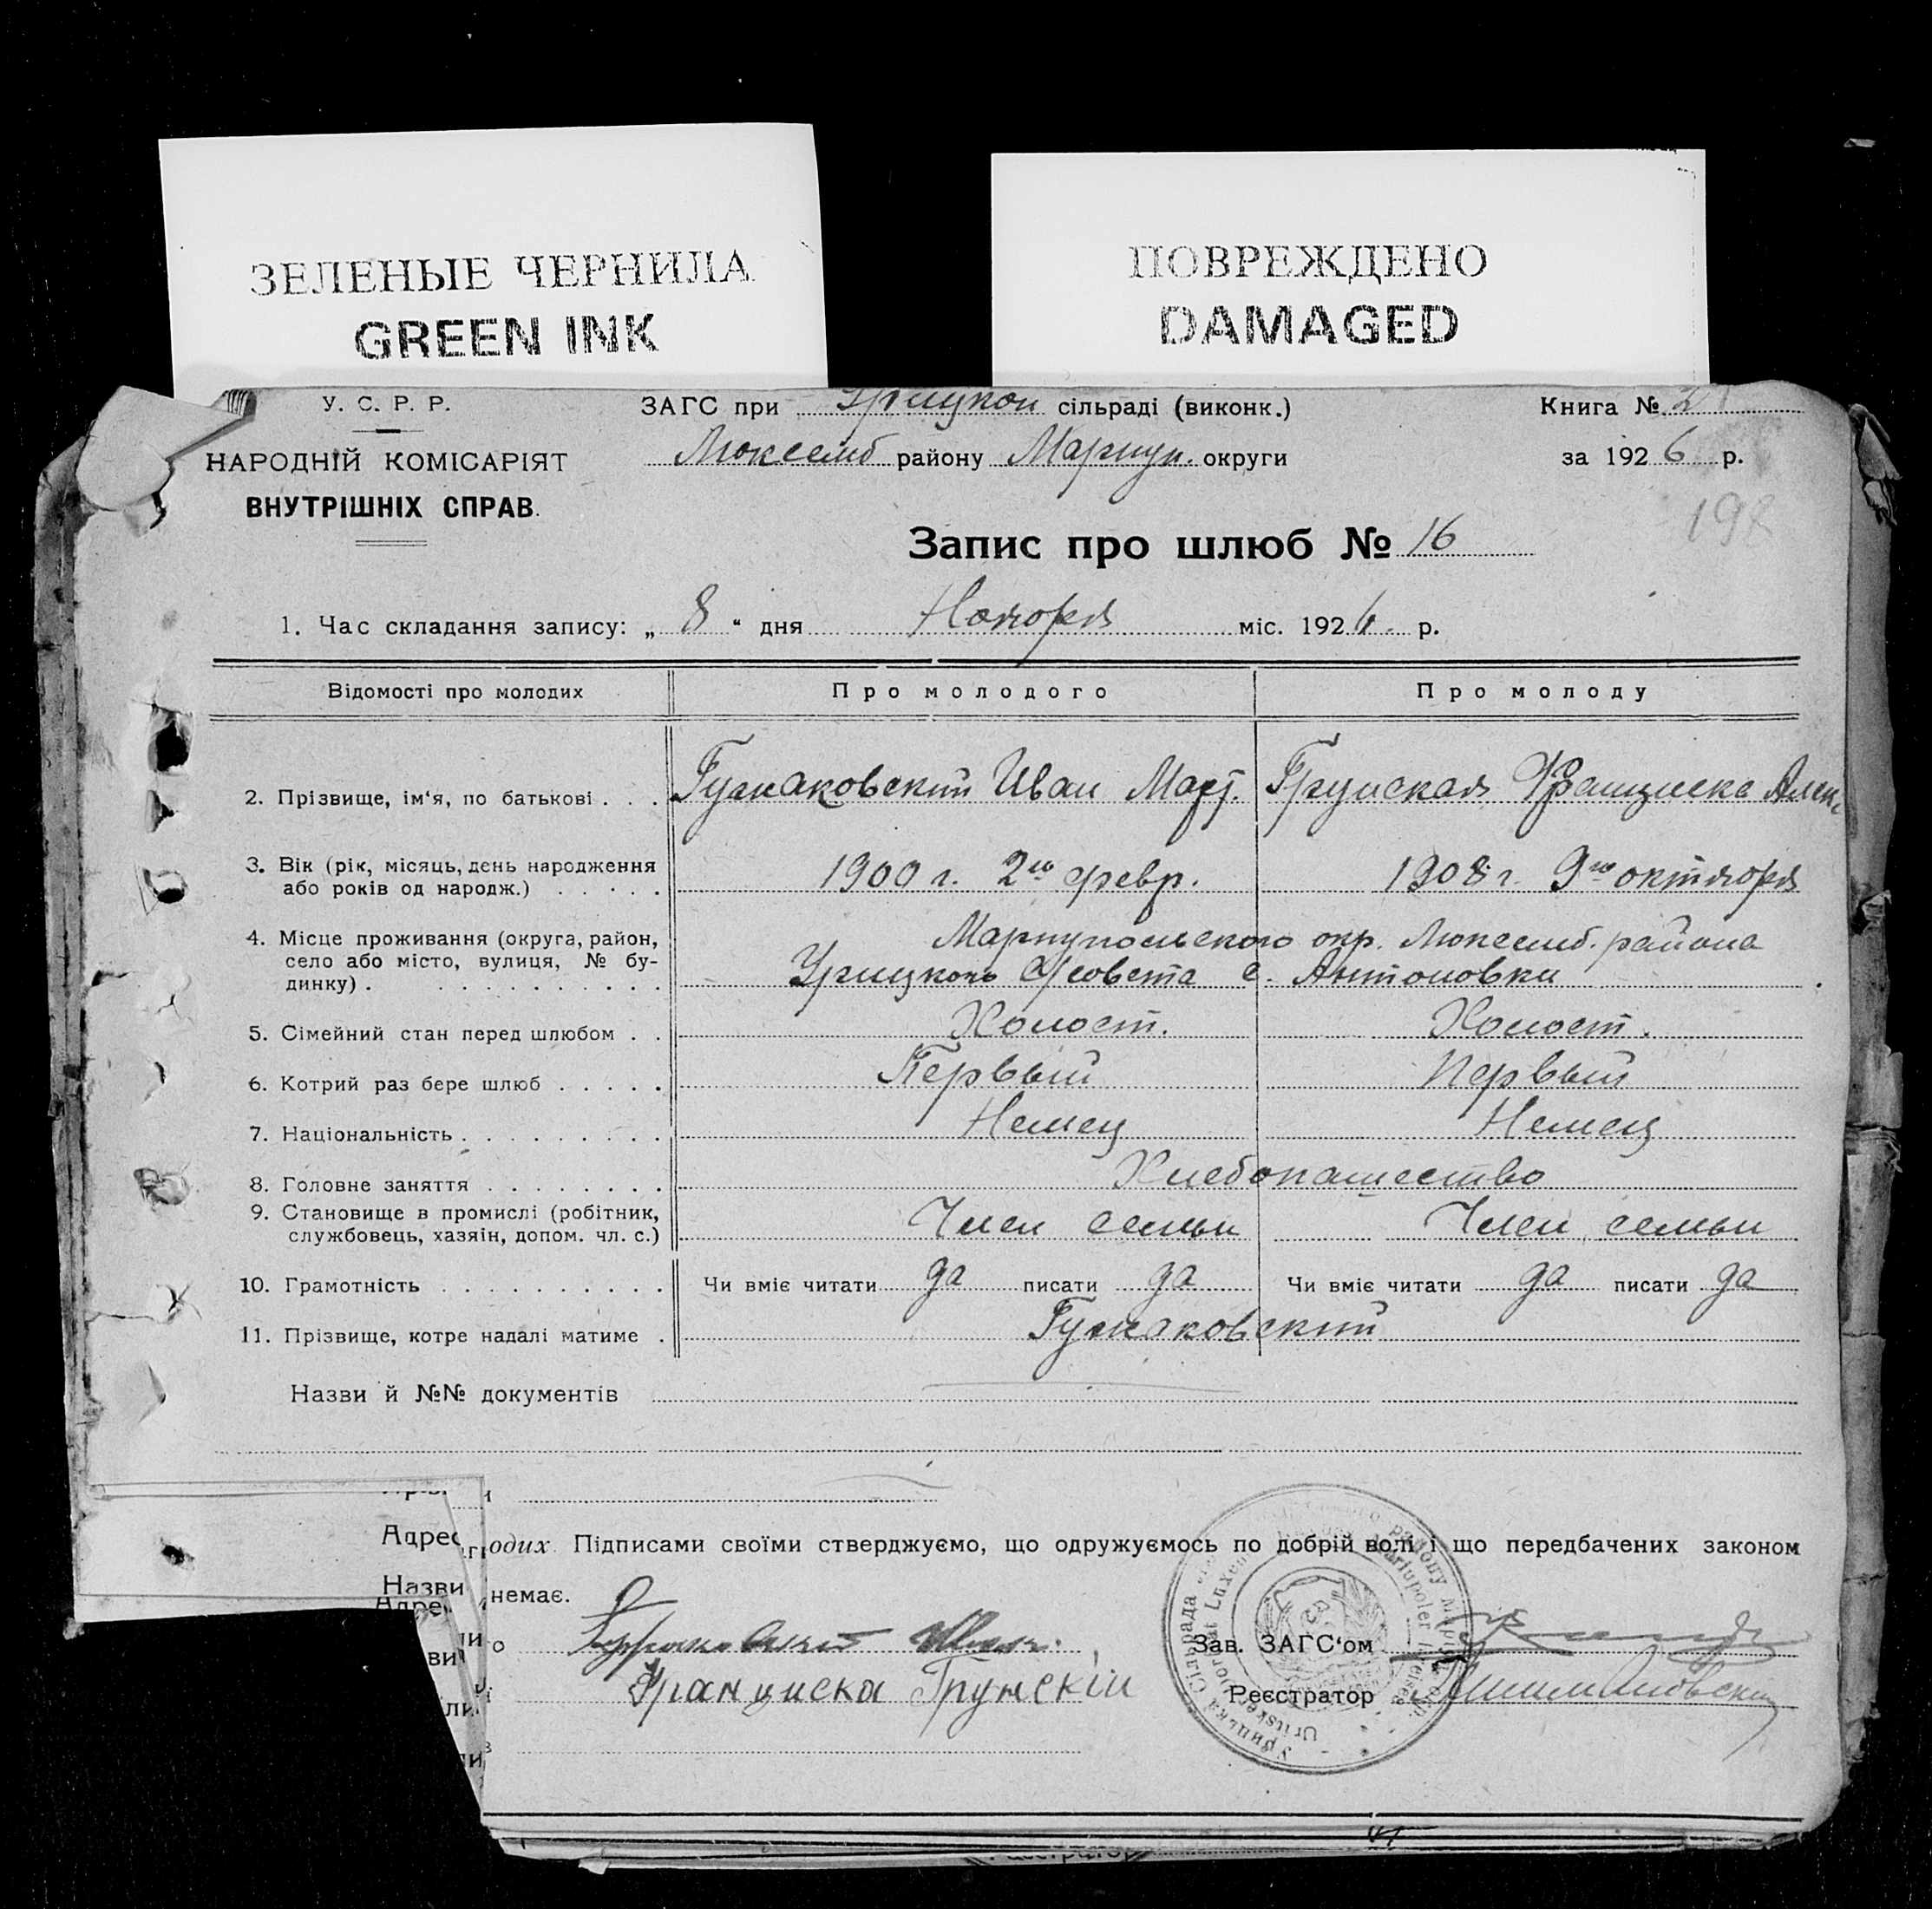 ЗЕЛЕНЫЕ ЧЕРНИЛА
GREEN INK
ПОВРЕЖДЕНО
DAMAGED
У. С. Р. Р.
НАРОДНІЙ КОМІСАРІЯТ
ВНУТРІШНІХ СПРАВ.
ЗАГС при Урицкой сільраді (виконк.)
Люксемб району Мариуп. округи
Книга № 2
за 1926 р.
198
Запис про шлюб № 16
1. Час складання запису: „ 8 “ дня Ноября міс. 1926. р.
Відомості про молодих Про молодого Про молоду
2. Прізвище, ім‘я, по батькові . . . Гумаковский Иван Март. Грунская Франциска Алек.
3. Вік (рік, місяць, день народження
або років од народж.) . . . . . 1900 г. 2го февр. 1908 г. 9го октября
4. Місце проживання (округа, район, Мариупольского окр. Люксемб. района
село або місто, вулиця, № бу- Урицкого с. Антоновки
динку) . . . . . . . . . . .
5. Сімейний стан перед шлюбом . . Холост. Холост.
6. Котрий раз бере шлюб . . . . . Первый Первый
7. Національність . . . . . . . . . Немец Немец
8. Головне заняття . . . . . . . . Хлебопашество
9. Становище в промислі (робітник, Член семьи Член семьи
службовець, хазяін, допом. чл. с.)
10. Грамотність . . . . . . . . . . Чи вміє читати да писати да Чи вміє читати да писати да
11. Прізвище, котре надалі матиме . Гумаковский
Назви й №№ документів
Адрес
одих. Підписами своїми стверджуємо, що одружуємось по добрій волі і що передбачених законом
Назви
немає.
Зав. ЗАГС‘ом
Франциска Грунскій
Реєстратор